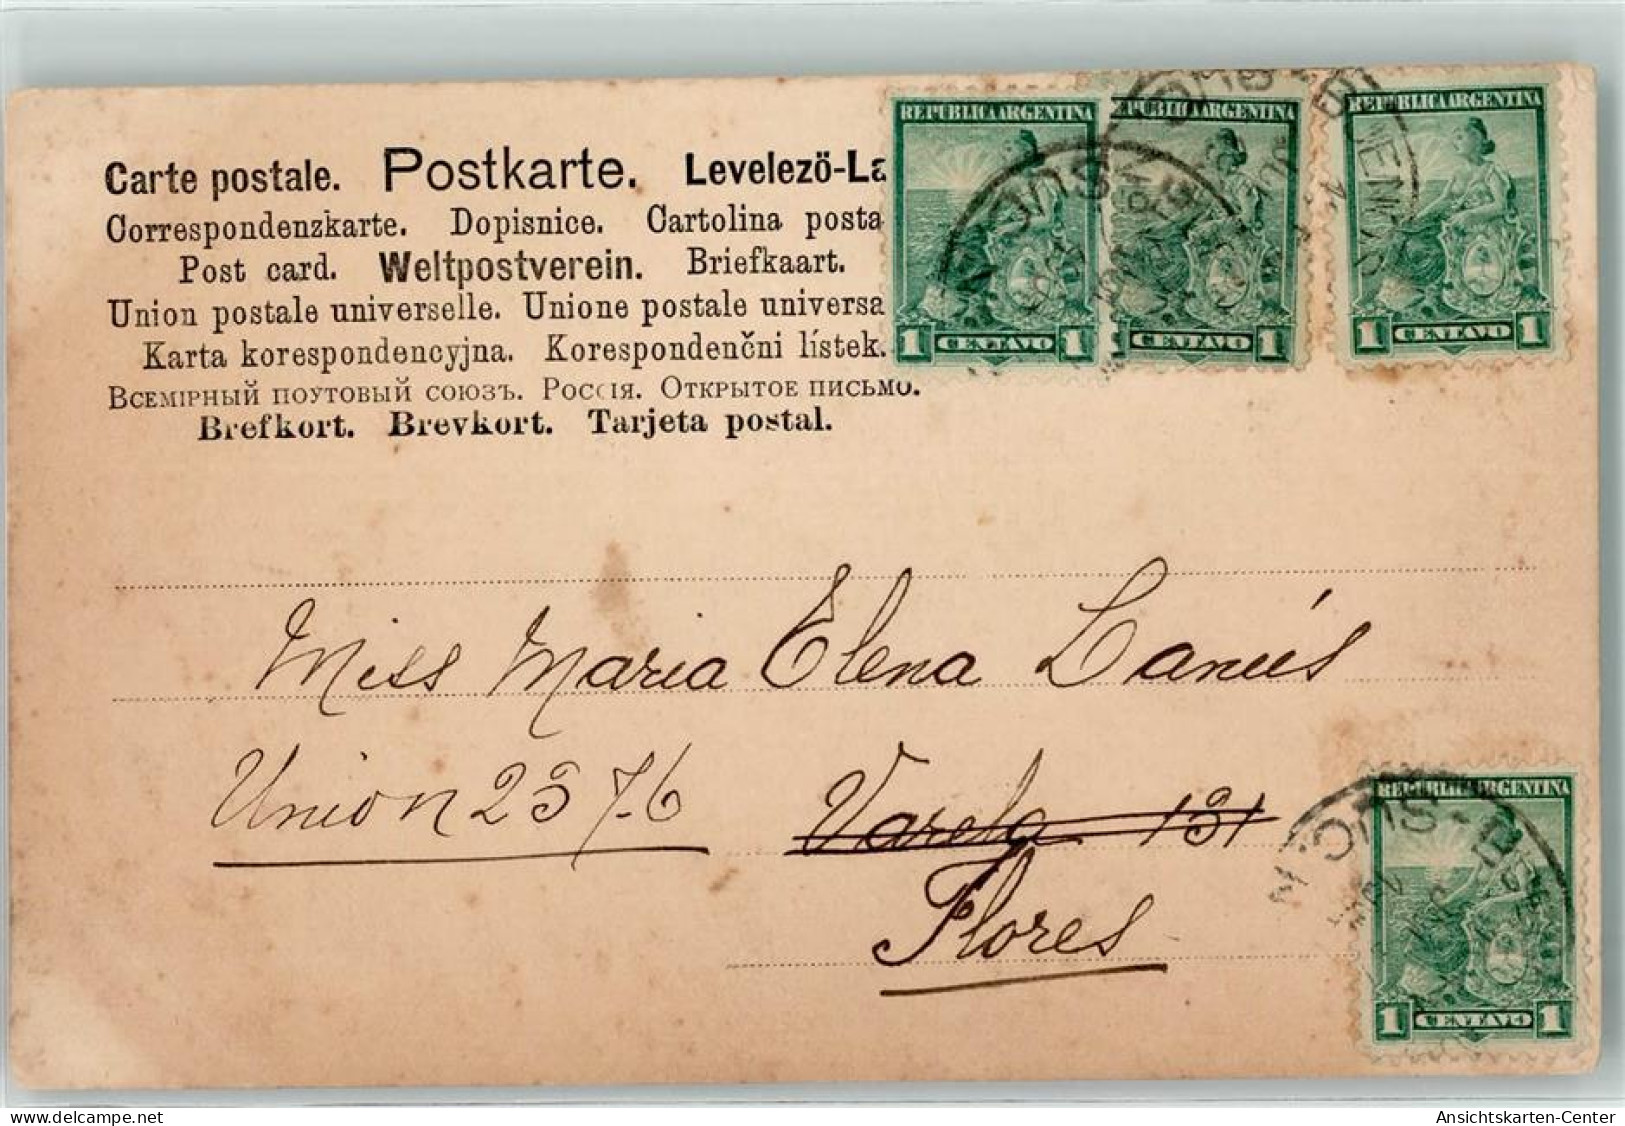 Carte postale. Postkarte. Levelező-La
Correspondenzkarte. Dopisnice. Cartolina posta
Post card. Weltpostverein. Briefkaart.
Union postale universelle. Unione postale universa
Karta korespondencyjna. Korespondenčni lístek.
Всемірный поутовый союзъ. Россія. Открытое письмо.
Brefkort. Brevkort. Tarjeta postal.
REPUBLICA ARGENTINA
1 CENTAVO 1
REPUBLICA ARGENTINA
CENTAVO 1
REPUBLICA ARGENTINA
1 CENTAVO 1
Miss Maria Elena Lanús
Union 2376
Varela 131
Flores
REPUBLICA ARGENTINA
1 CENTAVO 1
delcampe.net
Ansichtskarten-Center